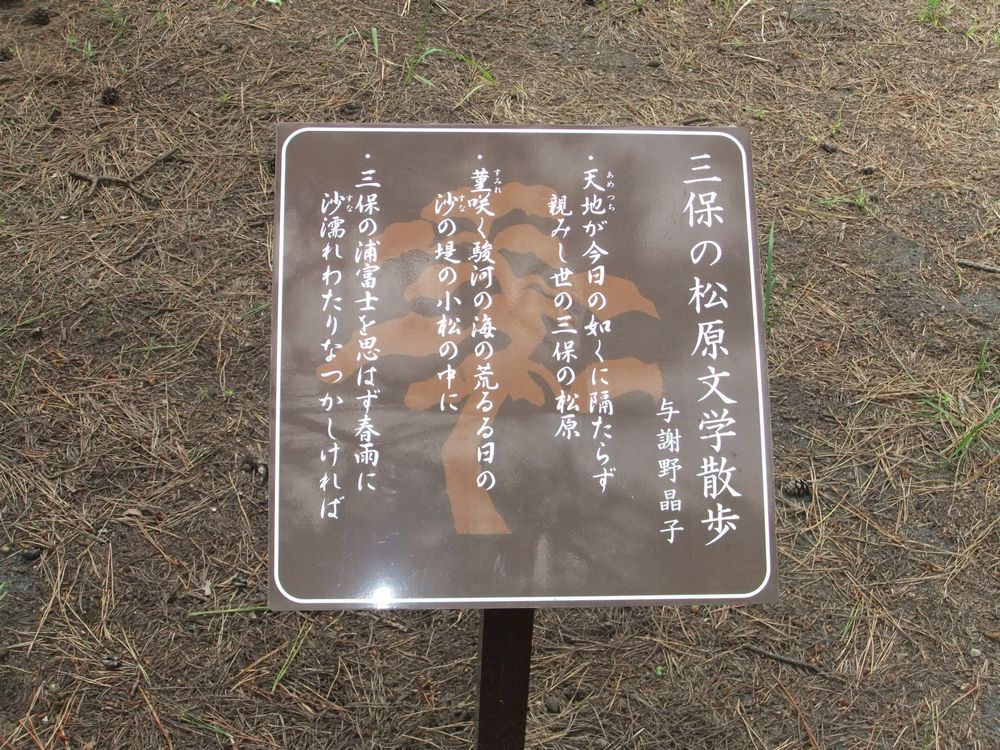 三保の松原文学散歩
与謝野晶子
・天地が今日の如くに隔たらず
親みし世の三保の松原
・菫咲く駿河の海の荒るる日の
沙の堤の小松の中に
・三保の浦富士を思はず春雨に
沙濡れわたりなつかしければ
あめつち
すみれ
すな
すな